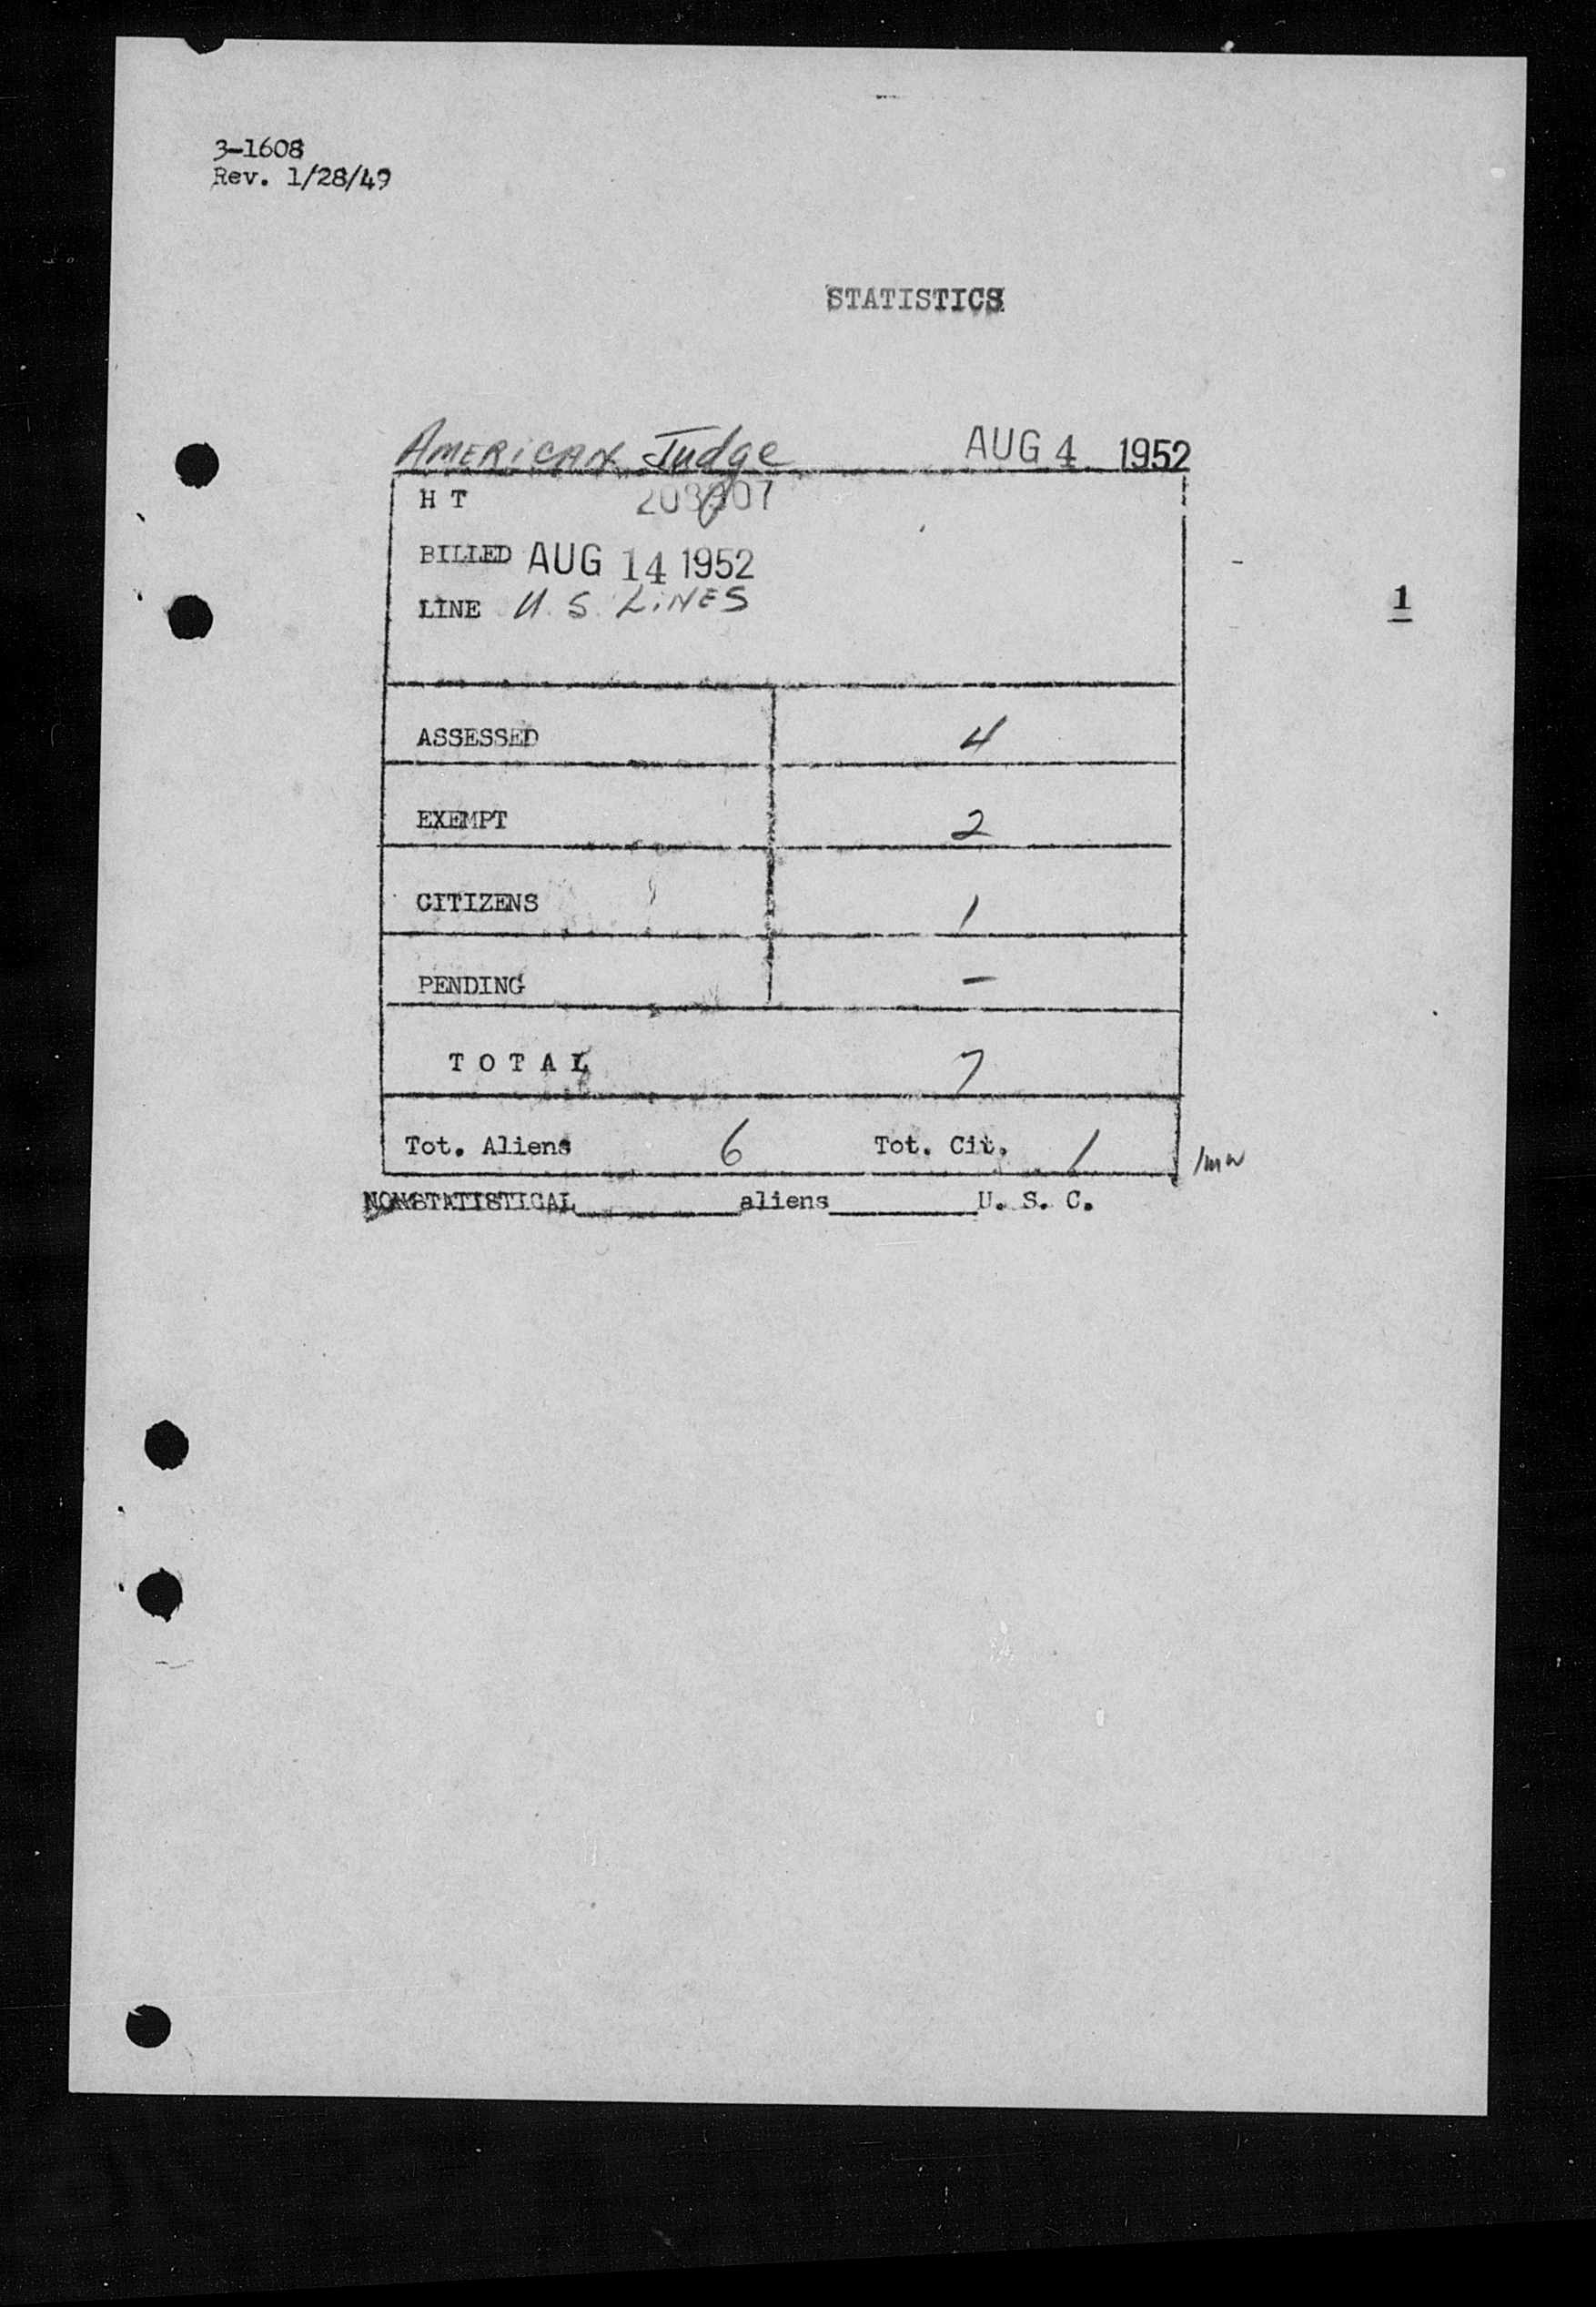 3-1608
Rev. 1/28/49
STATISTICS
AMERICAN Judge AUG 4 1952
H T
BILLED AUG 14 1952
LINE U. S. LINES
1
ASSESSED 4
EXEMPT 2
CITIZENS 1
PENDING -
T O T A L 7
Tot. Aliens 6 Tot. Cit. 1
NONSTATISTICAL aliens U. S. C.